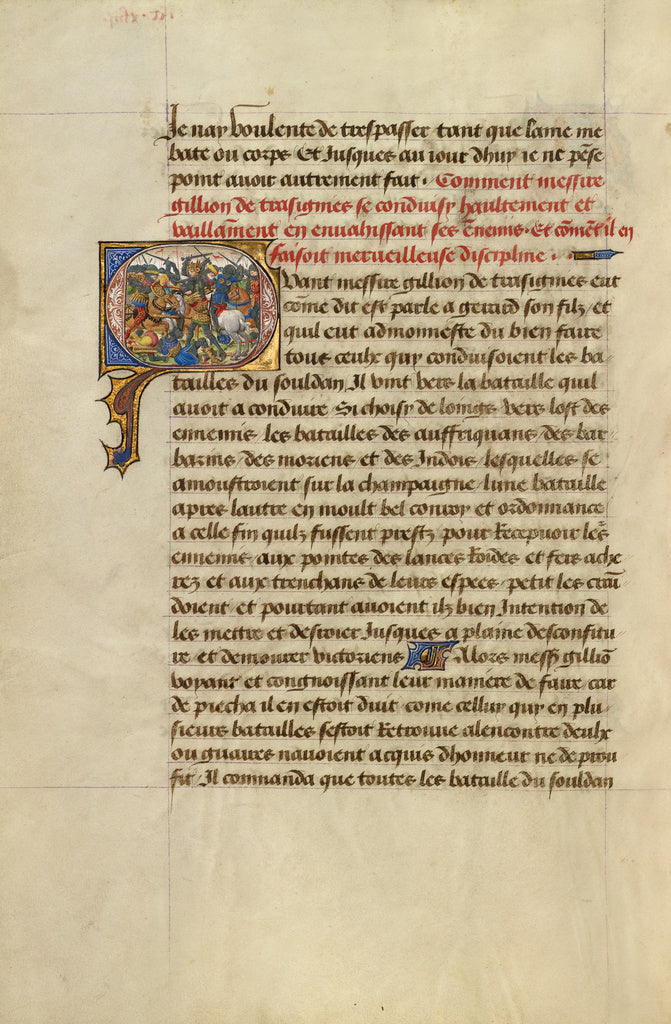 Je nay voulente de trespasser tant que lame me
bate ou corps Et Jusques au iour dhuy ie ne pēse
point avoir autrement fait. Comment messire
gillion de trasignies se conduisy haultement et
vaillāment en envahissant ses ennemis. Et cōmēt il en
faisoit merveilleuse discipline.
Quant messire gillion de trasignies eut
cōme dit est parle a gerard son filz et
quil eut admonneste du bien faire
tous ceulx quy conduisoient les ba-
tailles du souldan Il vint vers la bataille quil
avoit a conduire Si choisy de loings vers lost des
ennemis les batailles des auffriquans des bar-
barins des moriens et des Indois lesquelles se
amoustroient sur la champaigne lune bataille
apres lautre en moult bel convoy et ordonnance
a celle fin quilz fussent prestz pour Recepvoir les
ennemis aux pointes des lances Roides et fers ache
rez et aux trenchans de leurs espees petit les crai
doient et pourtant avoient ilz bien Intention de
les mettre et desvoier Jusques a plaine desconfitu
re et demourer victoriens Alors mess gilliō
voyant et congnoissant leur maniere de faire car
de piecha il en estoit duit come celluy quy en plu-
sieurs batailles sestoit Retrouve alencontre deulx
ou guaires navoient acquis dhonneur ne de prou
fit Il commanda que toutes les bataille du souldan